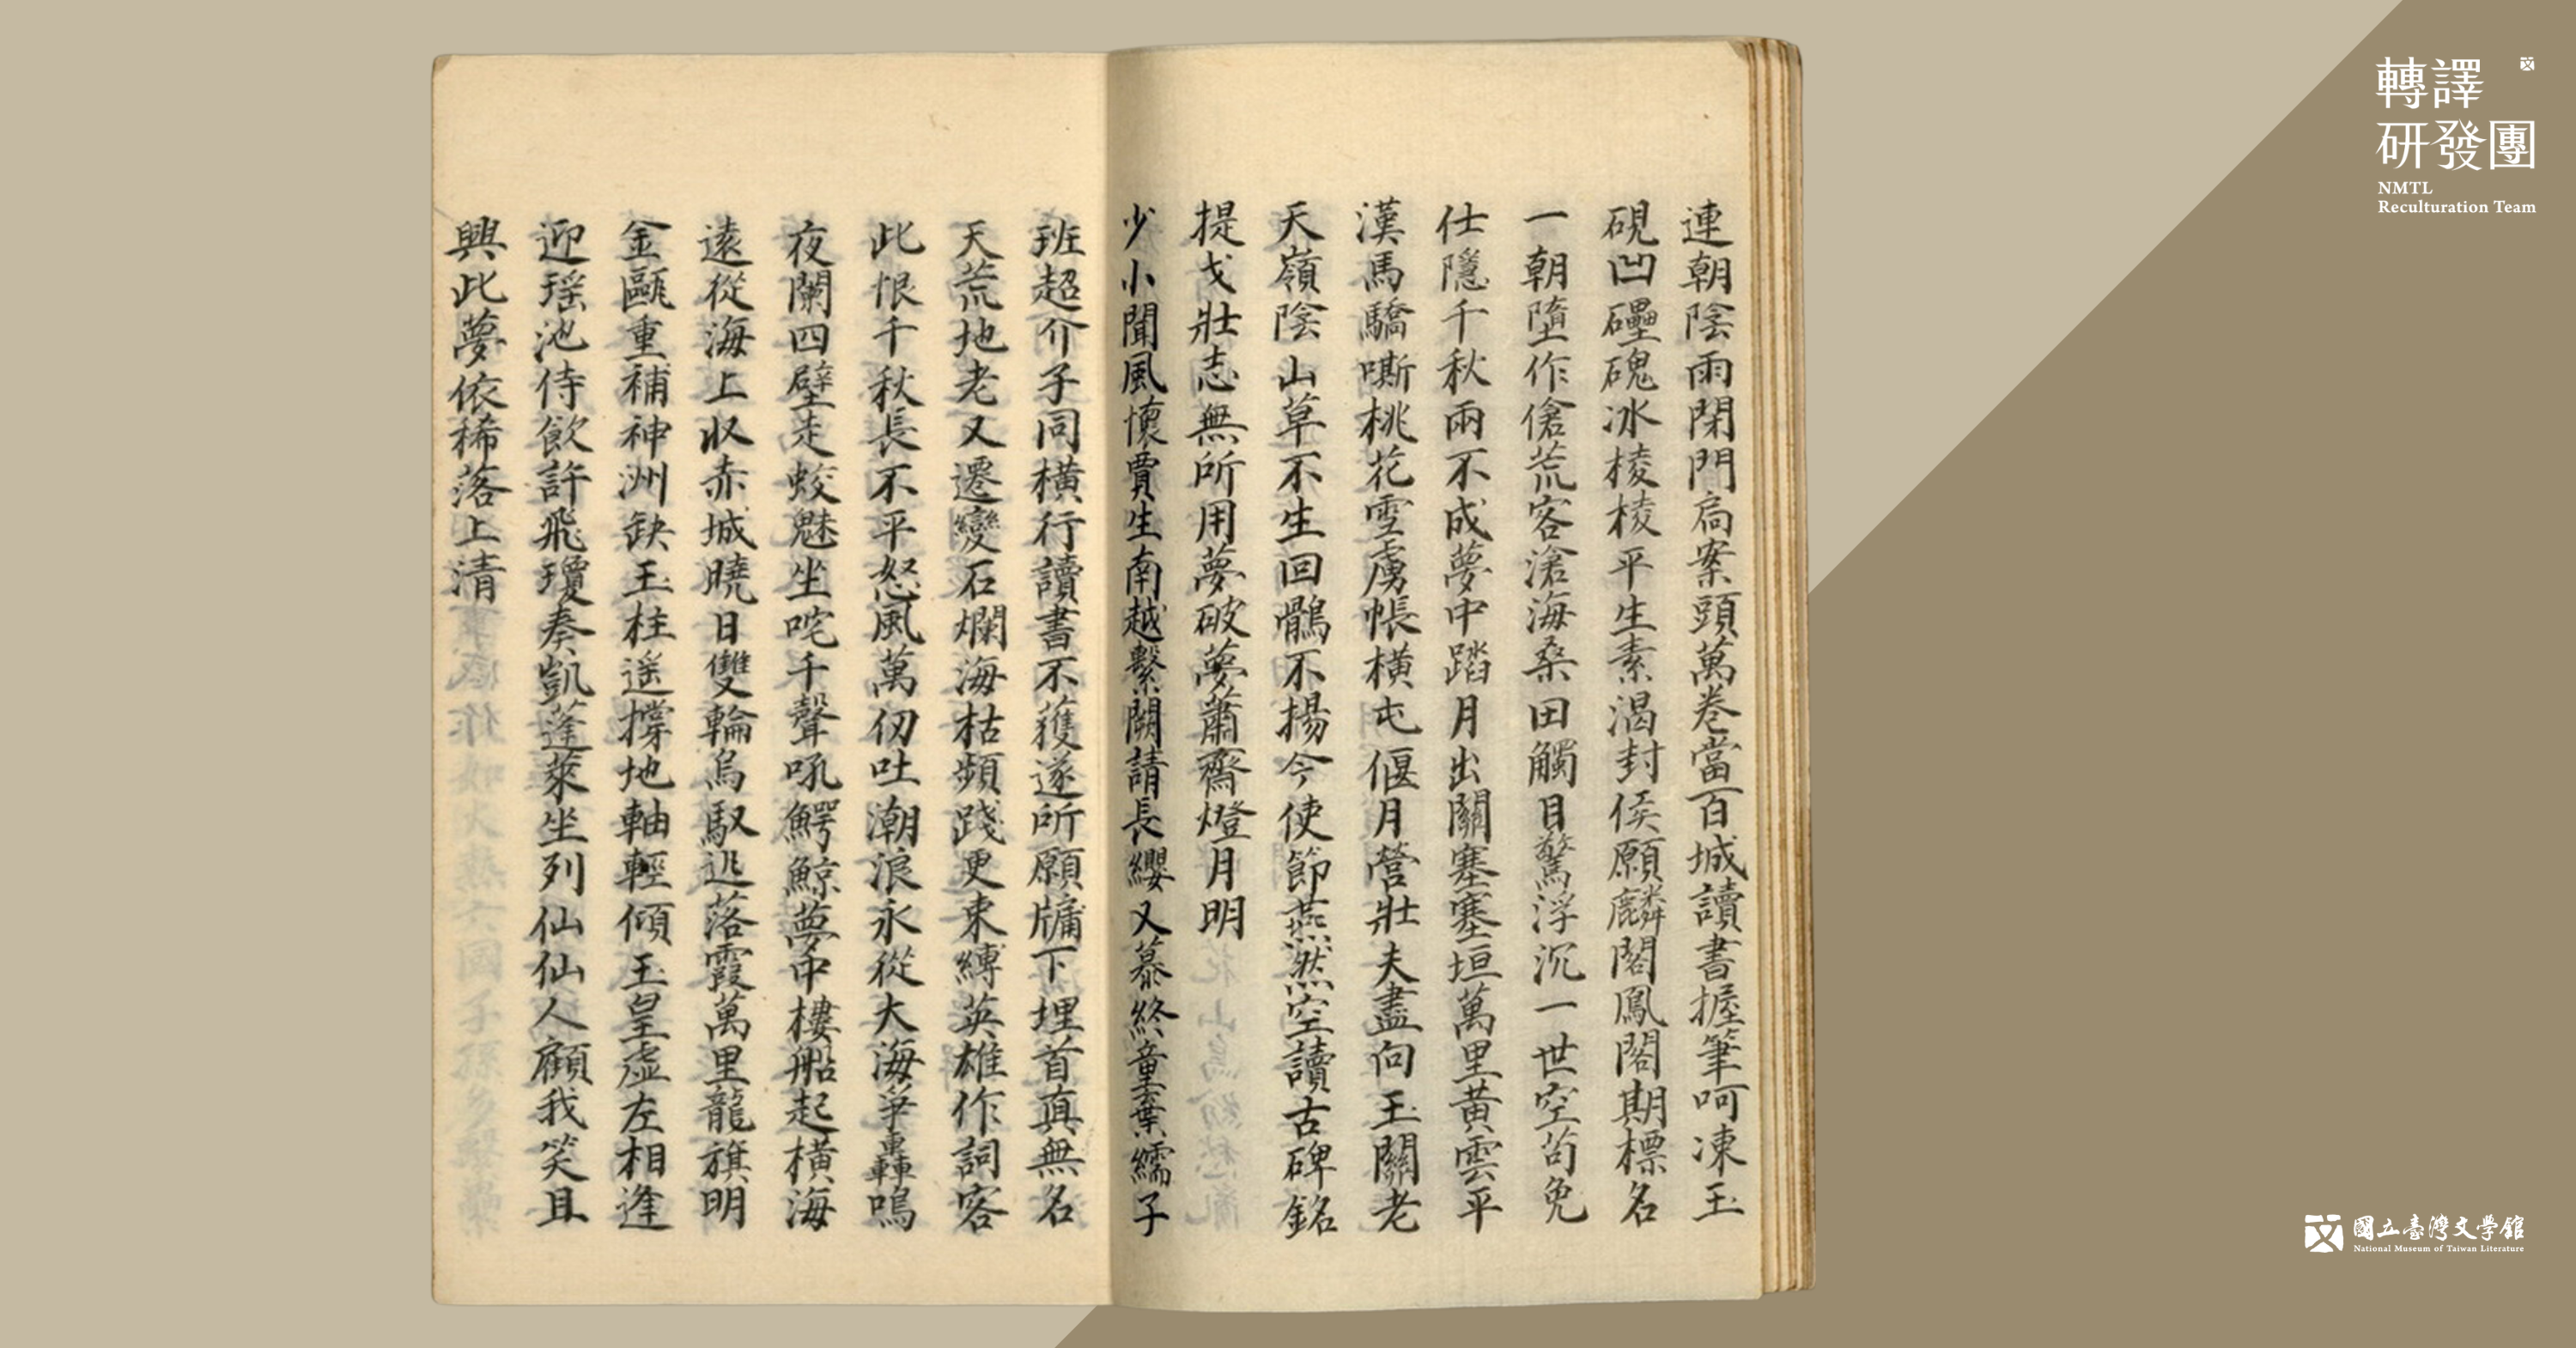 連朝陰雨閉門扃案頭萬卷當百城讀書握筆呵凍玉
硯凹礧磈冰棱棱平生素渴封侯願麟閣鳳閣期標名
一朝墮作傖荒客滄海桑田觸目驚浮沉一世空苟免
仕隱千秋兩不成夢中踏月出關塞塞垣萬里黃雲平
漢馬驕嘶桃花雪虜帳橫屯偃月營壯夫盡向玉關老
天嶺陰山草不生回鶻不揚今使節燕然空讀古碑銘
提戈壯志無所用夢破夢蕭齋燈月明
少小聞風懷賈生南越繫闕請長纓又慕終童棄繻子
班超介子同橫行讀書不獲遂所願牖下埋首真無名
天荒地老又遷變石爛海枯頻踐更束縛英雄作詞客
此恨千秋長不平怒風萬仞吐潮浪永從大海爭轟鳴
夜闌四壁走蛟魅坐咤千聲吼鱷鯨夢中樓船起橫海
遠從海上收赤城曉日雙輪烏馭迅落霞萬里龍旗明
金甌重補神洲缺玉柱遥撐地軸輕傾玉皇虛左相逢
迎瑶池侍飲許飛瓊奏凱蓬萊坐列仙仙人顧我笑且
興此夢依稀落上清
轉譯
研發團
NMTL
Reculturation Team
國立臺灣文學館
National Museum of Taiwan Literature